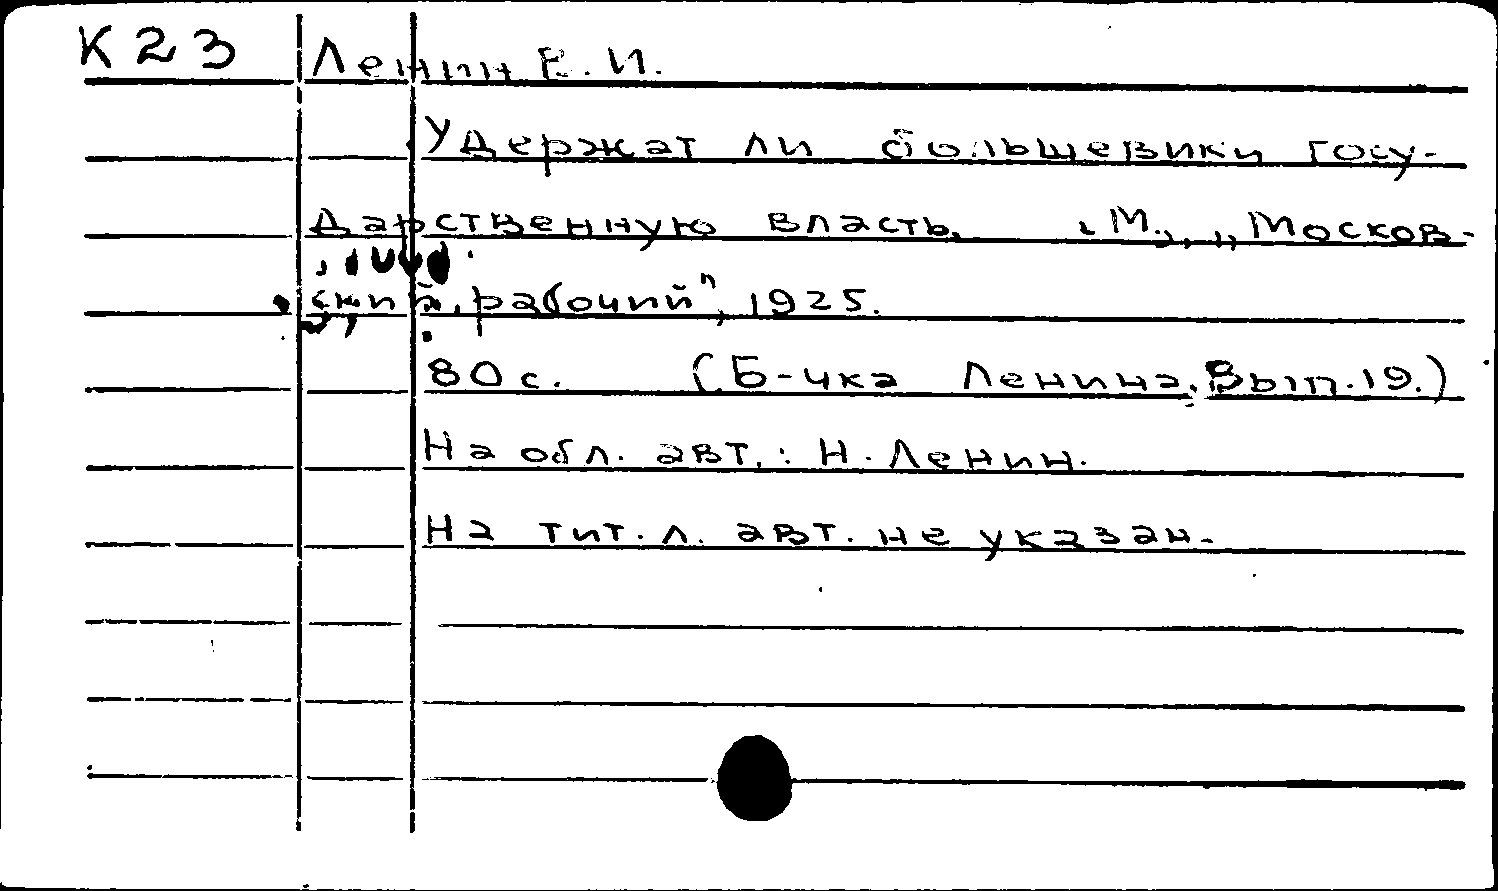 К23 Ленин В. И.
Удержат ли большевики госу-
дарственную власть. М., „Москов-
ский рабочий", 1925.
80 с. (Б-чка Ленина. Вып. 19.)
На обл. авт.: Н. Ленин.
На тит. л. авт. не указан.